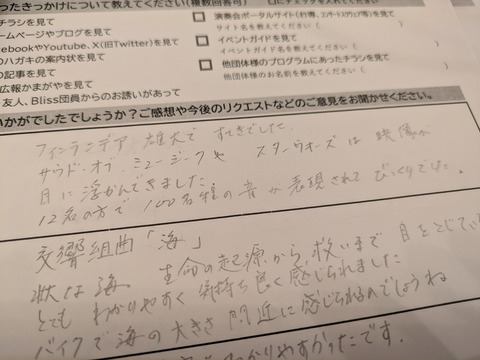 ったきっかけについて教えてください(複数回答可)
チラシを見て
ームページやブログを見て
acebookやYoutube、X(旧Twitter)を見て
のハガキの案内状を見て
の記事を見て
広報かまがやを見て
友人、Bliss団員からのお誘いがあって
にチェックを入れてください
演奏会ポータルサイト
サイト名を教えてください(
イベントガイドを見て
イベントガイド名を教えてください(
他団体様のプログラムにあったチラシを見て
他団体様のお名前を教えてください(
いかがでしたでしょうか?ご感想や今後のリクエストなどのご意見をお聞かせください。
フィンランデア 雄大で すてきでした.
サウド・オブ・ミュージークや スターウォーズは 映像が
目に浮かんできました
12名の方で 100名程の音が表現されて びっくりでした。
交響組曲「海」
壮大な海 生命の起源から、救いまで 目をとじてい
とても わかりやすく 気持ち良く感じられました
バイクで海の大きさ 間近に感じられるのでしょうね
かりやすかったです.